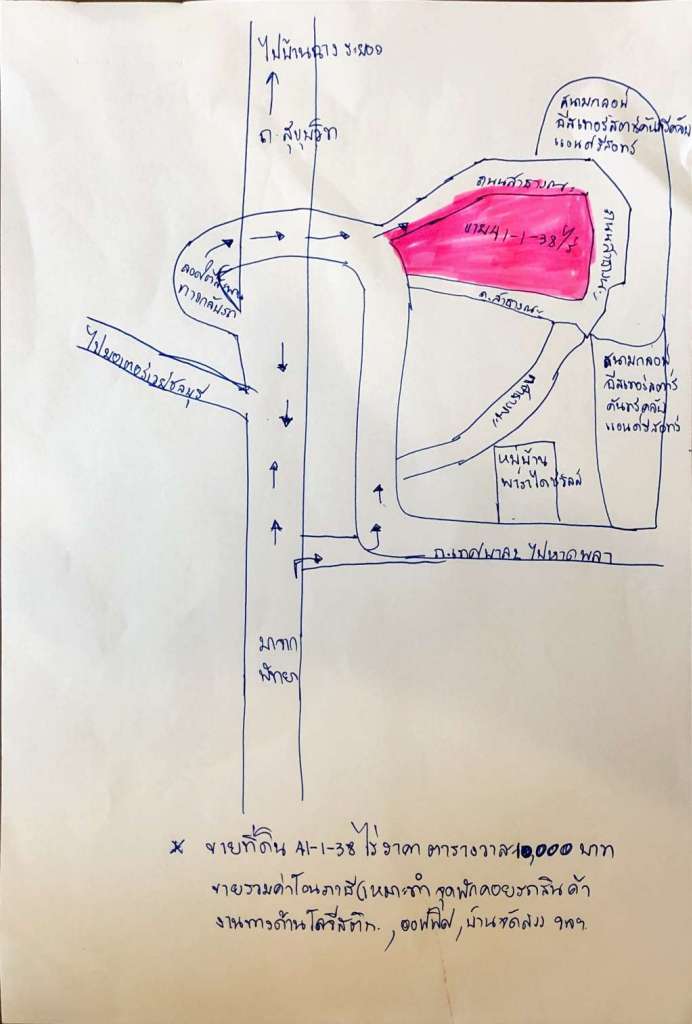 ไปบ้านฉาง ระยอง
ถ. สุขุมวิท
สนามกลอฟ
อีสเทอร์สตาร์คันทรีคลับ
แอนด์รีสอทร์
ถนนสาธารณะ
ขาย 41-1-38 ไร่
ถนนสาธารณะ
ถ.สาธารณะ
ลอดใต้สะพาน
ทางกลับรถ
ไปมอเตอร์เวย์ชลบุรี
สนามกลอฟ
อีสเทอร์สตาร์
คันทรีคลับ
แอนด์รีสอทร์
หมู่บ้าน
พาราไดซ์ฮิลล์
ถ.เทศบาล๒ ไปหาดพลา
มาจาก
พัทยา
* ขายที่ดิน 41-1-38 ไร่ ราคา ตารางวาละ 10,000 บาท
ขายรวมค่าโอนภาษี เหมาะทำ จุดพักคอยรถสินค้า
งานทางด้านโลจีสติก. , ออฟฟิศ , บ้านจัดสรร ฯลฯ.